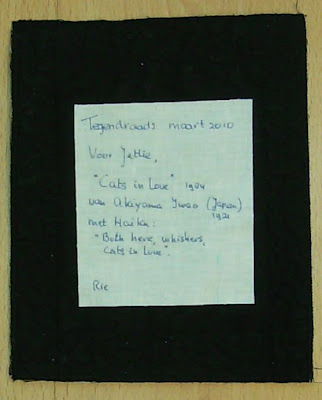 Tegendraads maart 2010
Voor Jettie,
"Cats in Love" 1984
van Akayama Iwao (Japan)
1921
met Haiku:
"Both here, whiskers,
Cats in Love".
Rie